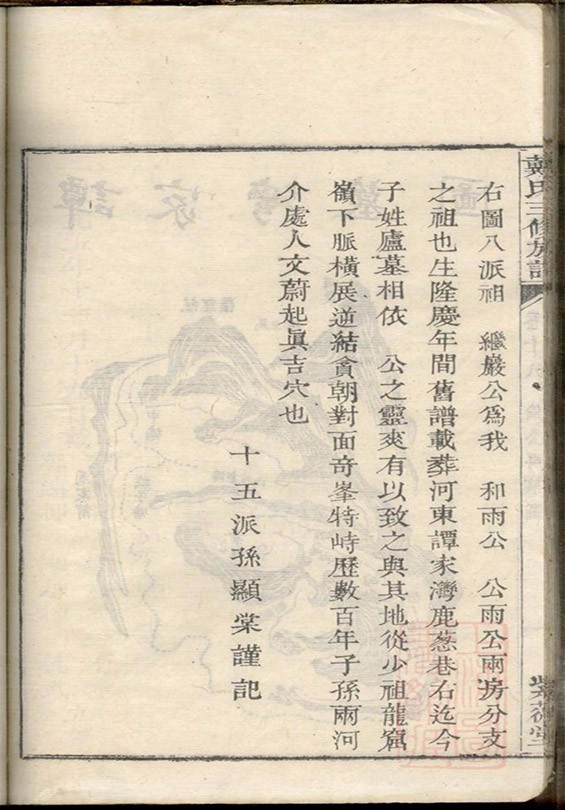 戴氏三修族譜
紫薇堂
右圖八派祖 繼巖公爲我 和雨公 公雨公兩房分支
之祖也生隆慶年間舊譜載葬河東譚家灣鹿葱巷右迄今
子姓廬墓相依 公之靈爽有以致之與其地從少祖龍窟
嶺下脈橫展逆結貪朝對面奇峯特峙歷數百年子孫兩河
介處人文蔚起眞吉穴也
十五派孫顯棠謹記